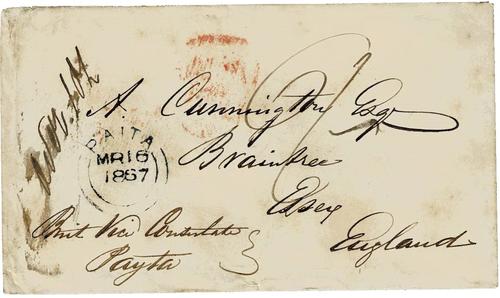 A. Cunnington Esqr
Braintree
Essex
England
PAITA
MR 16
1867
Brit Vice Consulate
Payta